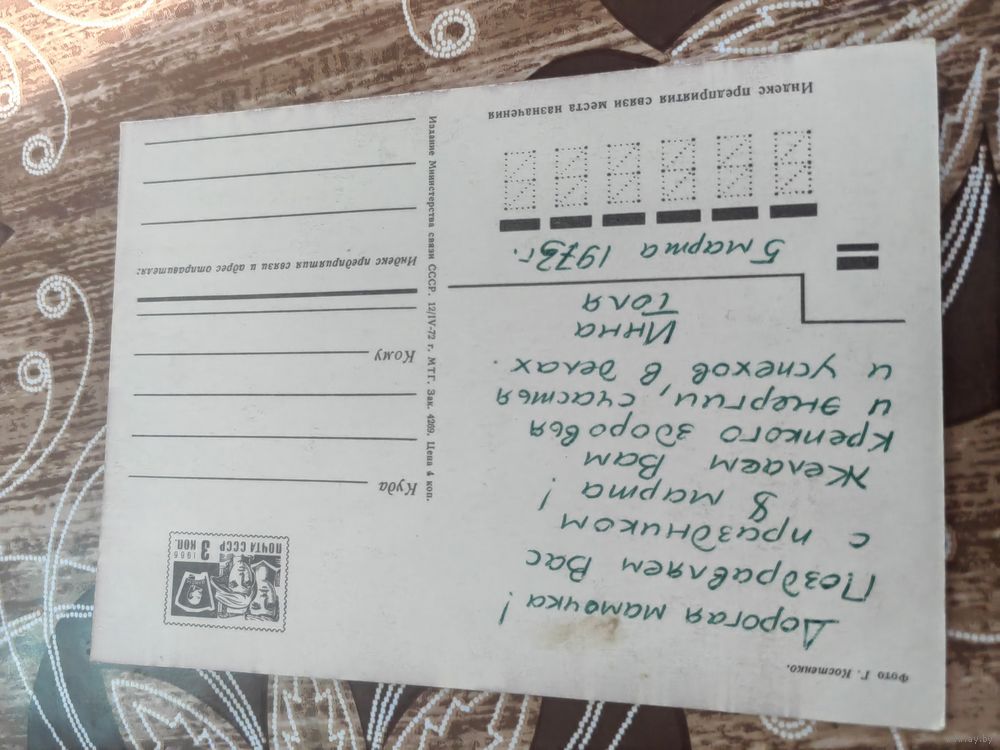 Фото Г. Костенко.
Дорогая мамочка!
Поздравляем Вас
с праздником
8 марта!
Желаем Вам
крепкого здоровья
и энергии, счастья
и успехов в делах.
Инна
Толя
5 марта 1973 г.
Индекс предприятия связи места назначения
Издание Министерства связи СССР. 12/IV-72 г. МТГ. Зак. 4209. Цена 4 коп.
1966
ПОЧТА СССР 3 КОП
Куда
Кому
Индекс предприятия связи и адрес отправителя: